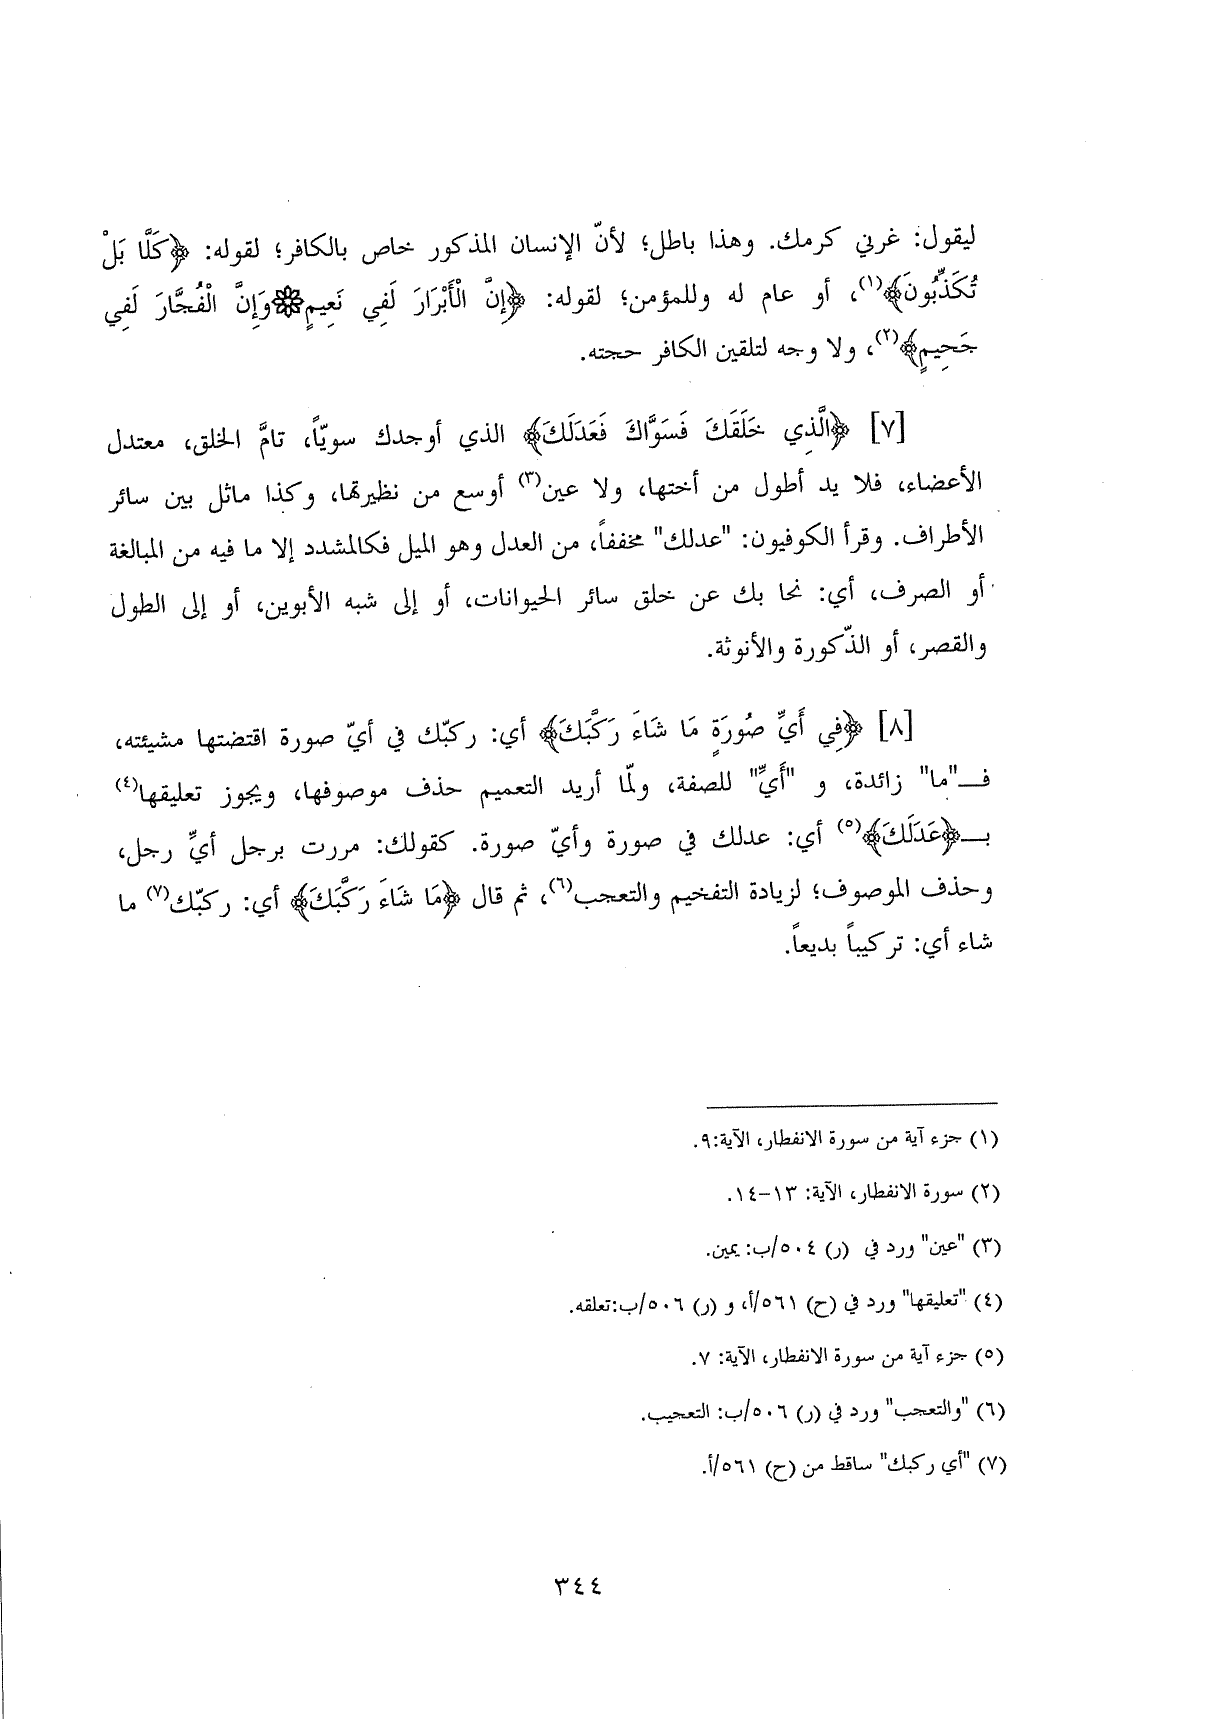 ليقول: غرني كرمك. وهذا باطل؛ لأنّ الإنسان المذكور خاص بالكافر؛ لقوله: ﴿كَلَّا بَلْ
تُكَذِّبُونَ﴾(١)، أو عام له وللمؤمن؛ لقوله: ﴿إِنَّ الْأَبْرَارَ لَفِي نَعِيمٍ❁وَإِنَّ الْفُجَّارَ لَفِي
جَحِيمٍ﴾(٢)، ولا وجه لتلقين الكافر حجته.
[٧] ﴿الَّذِي خَلَقَكَ فَسَوَّاكَ فَعَدَلَكَ﴾ الذي أوجدك سويّاً، تامَّ الخلق، معتدل
الأعضاء، فلا يد أطول من أختها، ولا عين(٣) أوسع من نظيرتها، وكذا ماثل بين سائر
الأطراف. وقرأ الكوفيون: "عدلك" مخففاً، من العدل وهو الميل فكالمشدد إلا ما فيه من المبالغة
أو الصرف، أي: نحا بك عن خلق سائر الحيوانات، أو إلى شبه الأبوين، أو إلى الطول
والقصر، أو الذّكورة والأنوثة.
[٨] ﴿فِي أَيِّ صُورَةٍ مَا شَاءَ رَكَّبَكَ﴾ أي: ركبّك في أيّ صورة اقتضتها مشيئته،
فـ"ما" زائدة، و "أَيِّ" للصفة، ولمّا أريد التعميم حذف موصوفها، ويجوز تعليقها(٤)
بـ﴿عَدَلَكَ﴾(٥) أي: عدلك في صورة وأيّ صورة. كقولك: مررت برجل أيِّ رجل،
وحذف الموصوف؛ لزيادة التفخيم والتعجب(٦)، ثم قال ﴿مَا شَاءَ رَكَّبَكَ﴾ أي: ركبّك(٧) ما
شاء أي: تركيباً بديعاً.
(١) جزء آية من سورة الانفطار، الآية:٩.
(٢) سورة الانفطار، الآية: ١٣-١٤.
(٣) "عين" ورد في (ر) ٥٠٤/ب: يمين.
(٤) "تعليقها" ورد في (ح) ٥٦١/أ، و (ر) ٥٠٦/ب:تعلقه.
(٥) جزء آية من سورة الانفطار، الآية: ٧.
(٦) "والتعجب" ورد في (ر) ٥٠٦/ب: التعجيب.
(٧) "أي ركبك" ساقط من (ح) ٥٦١/أ.
٣٤٤